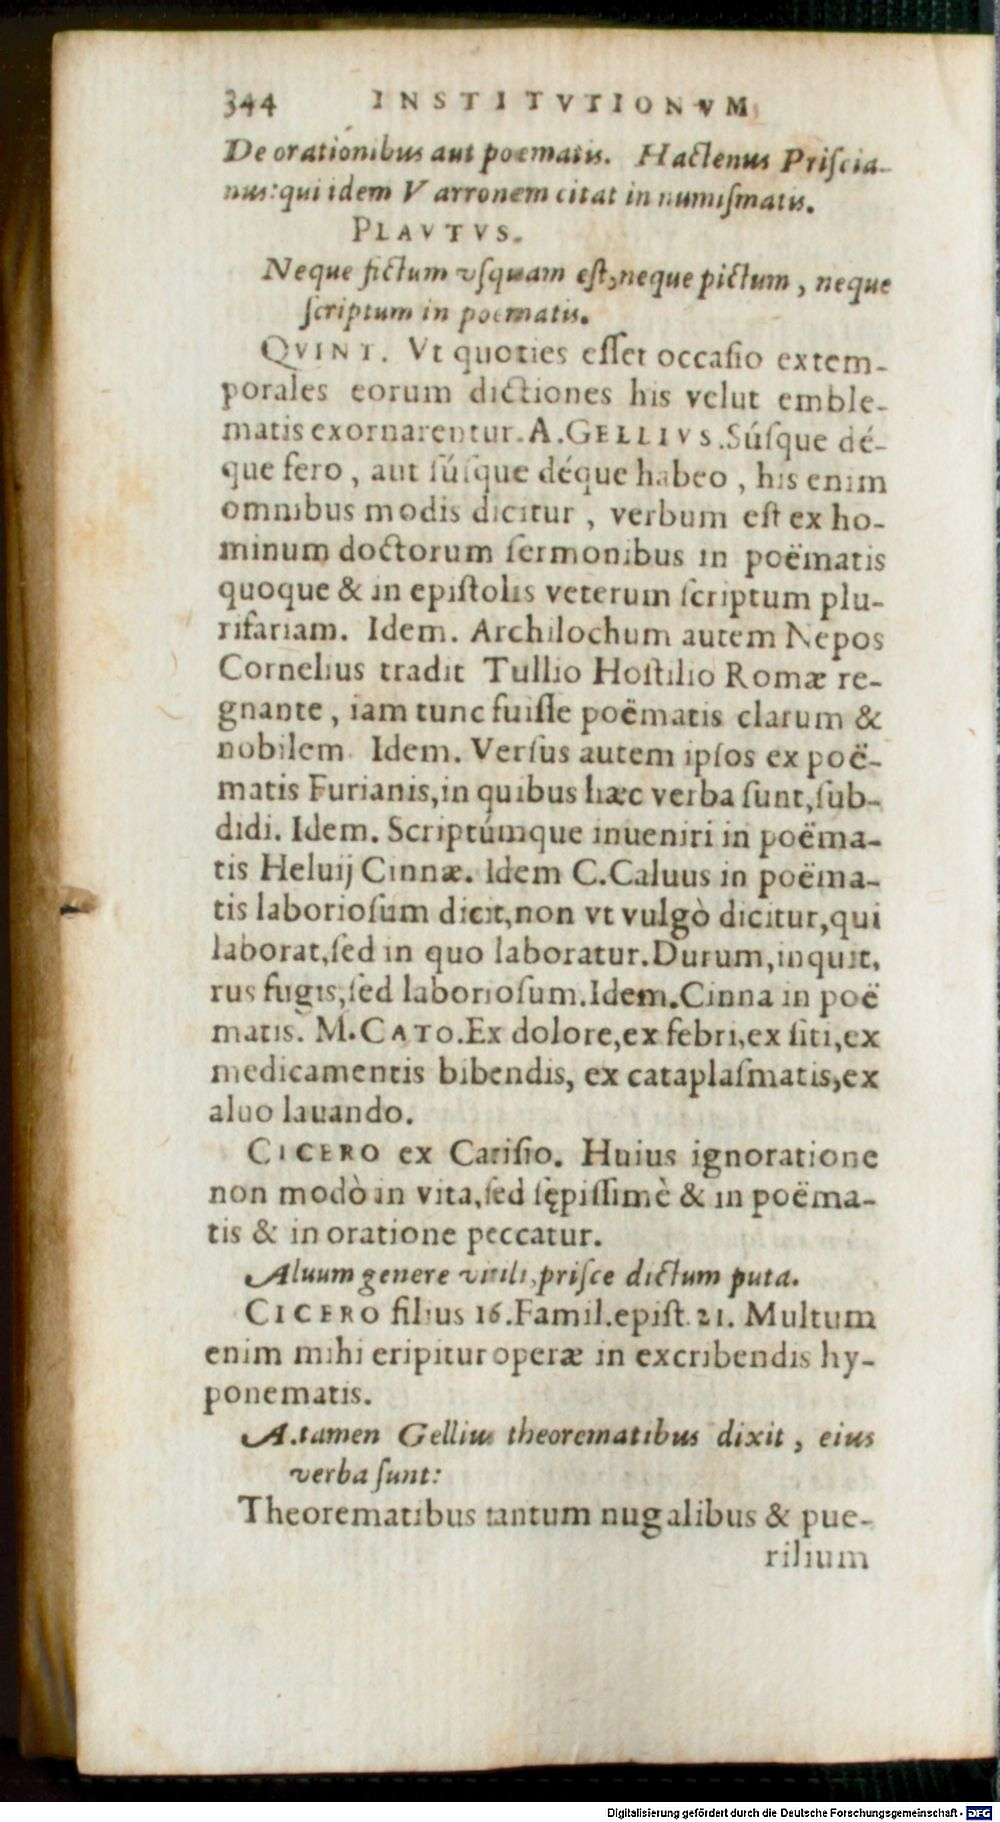 344 INSTITVTIONVM
De orationibus aut poematis. Hactenus Priſcia-
nus: qui idem Varronem citat in numiſmatis.
PLAVTVS.
Neque fictum vſquam eſt, neque pictum, neque
ſcriptum in poematis.
QVINT. Vt quoties eſſet occaſio extem-
porales eorum dictiones his velut emble-
matis exornarentur. A. GELLIVS. Súſque dé-
que fero, aut ſúſque déque habeo, his enim
omnibus modis dicitur, verbum eſt ex ho-
minum doctorum ſermonibus in poëmatis
quoque & in epiſtolis veterum ſcriptum plu-
rifariam. Idem. Archilochum autem Nepos
Cornelius tradit Tullio Hoſtilio Romæ re-
gnante, iam tunc fuiſſe poëmatis clarum &
nobilem. Idem. Verſus autem ipſos ex poë-
matis Furianis, in quibus hæc verba ſunt, ſub-
didi. Idem. Scriptúmque inueniri in poëma-
tis Heluij Cinnæ. Idem C. Caluus in poëma-
tis laborioſum dicit, non vt vulgò dicitur, qui
laborat, ſed in quo laboratur. Durum, inquit,
rus fugis, ſed laborioſum. Idem. Cinna in poë
matis. M. CATO. Ex dolore, ex febri, ex ſiti, ex
medicamentis bibendis, ex cataplaſmatis, ex
aluo lauando.
CICERO ex Cariſio. Huius ignoratione
non modò in vita, ſed ſępiſſimè & in poëma-
tis & in oratione peccatur.
Aluum genere virili, priſce dictum puta.
CICERO filius 16. Famil. epiſt. 21. Multum
enim mihi eripitur operæ in excribendis hy-
ponematis.
A. tamen Gellius theorematibus dixit, eius
verba ſunt:
Theorematibus tantum nugalibus & pue-
rilium
Digitalisierung gefördert durch die Deutsche Forschungsgemeinschaft - DFG